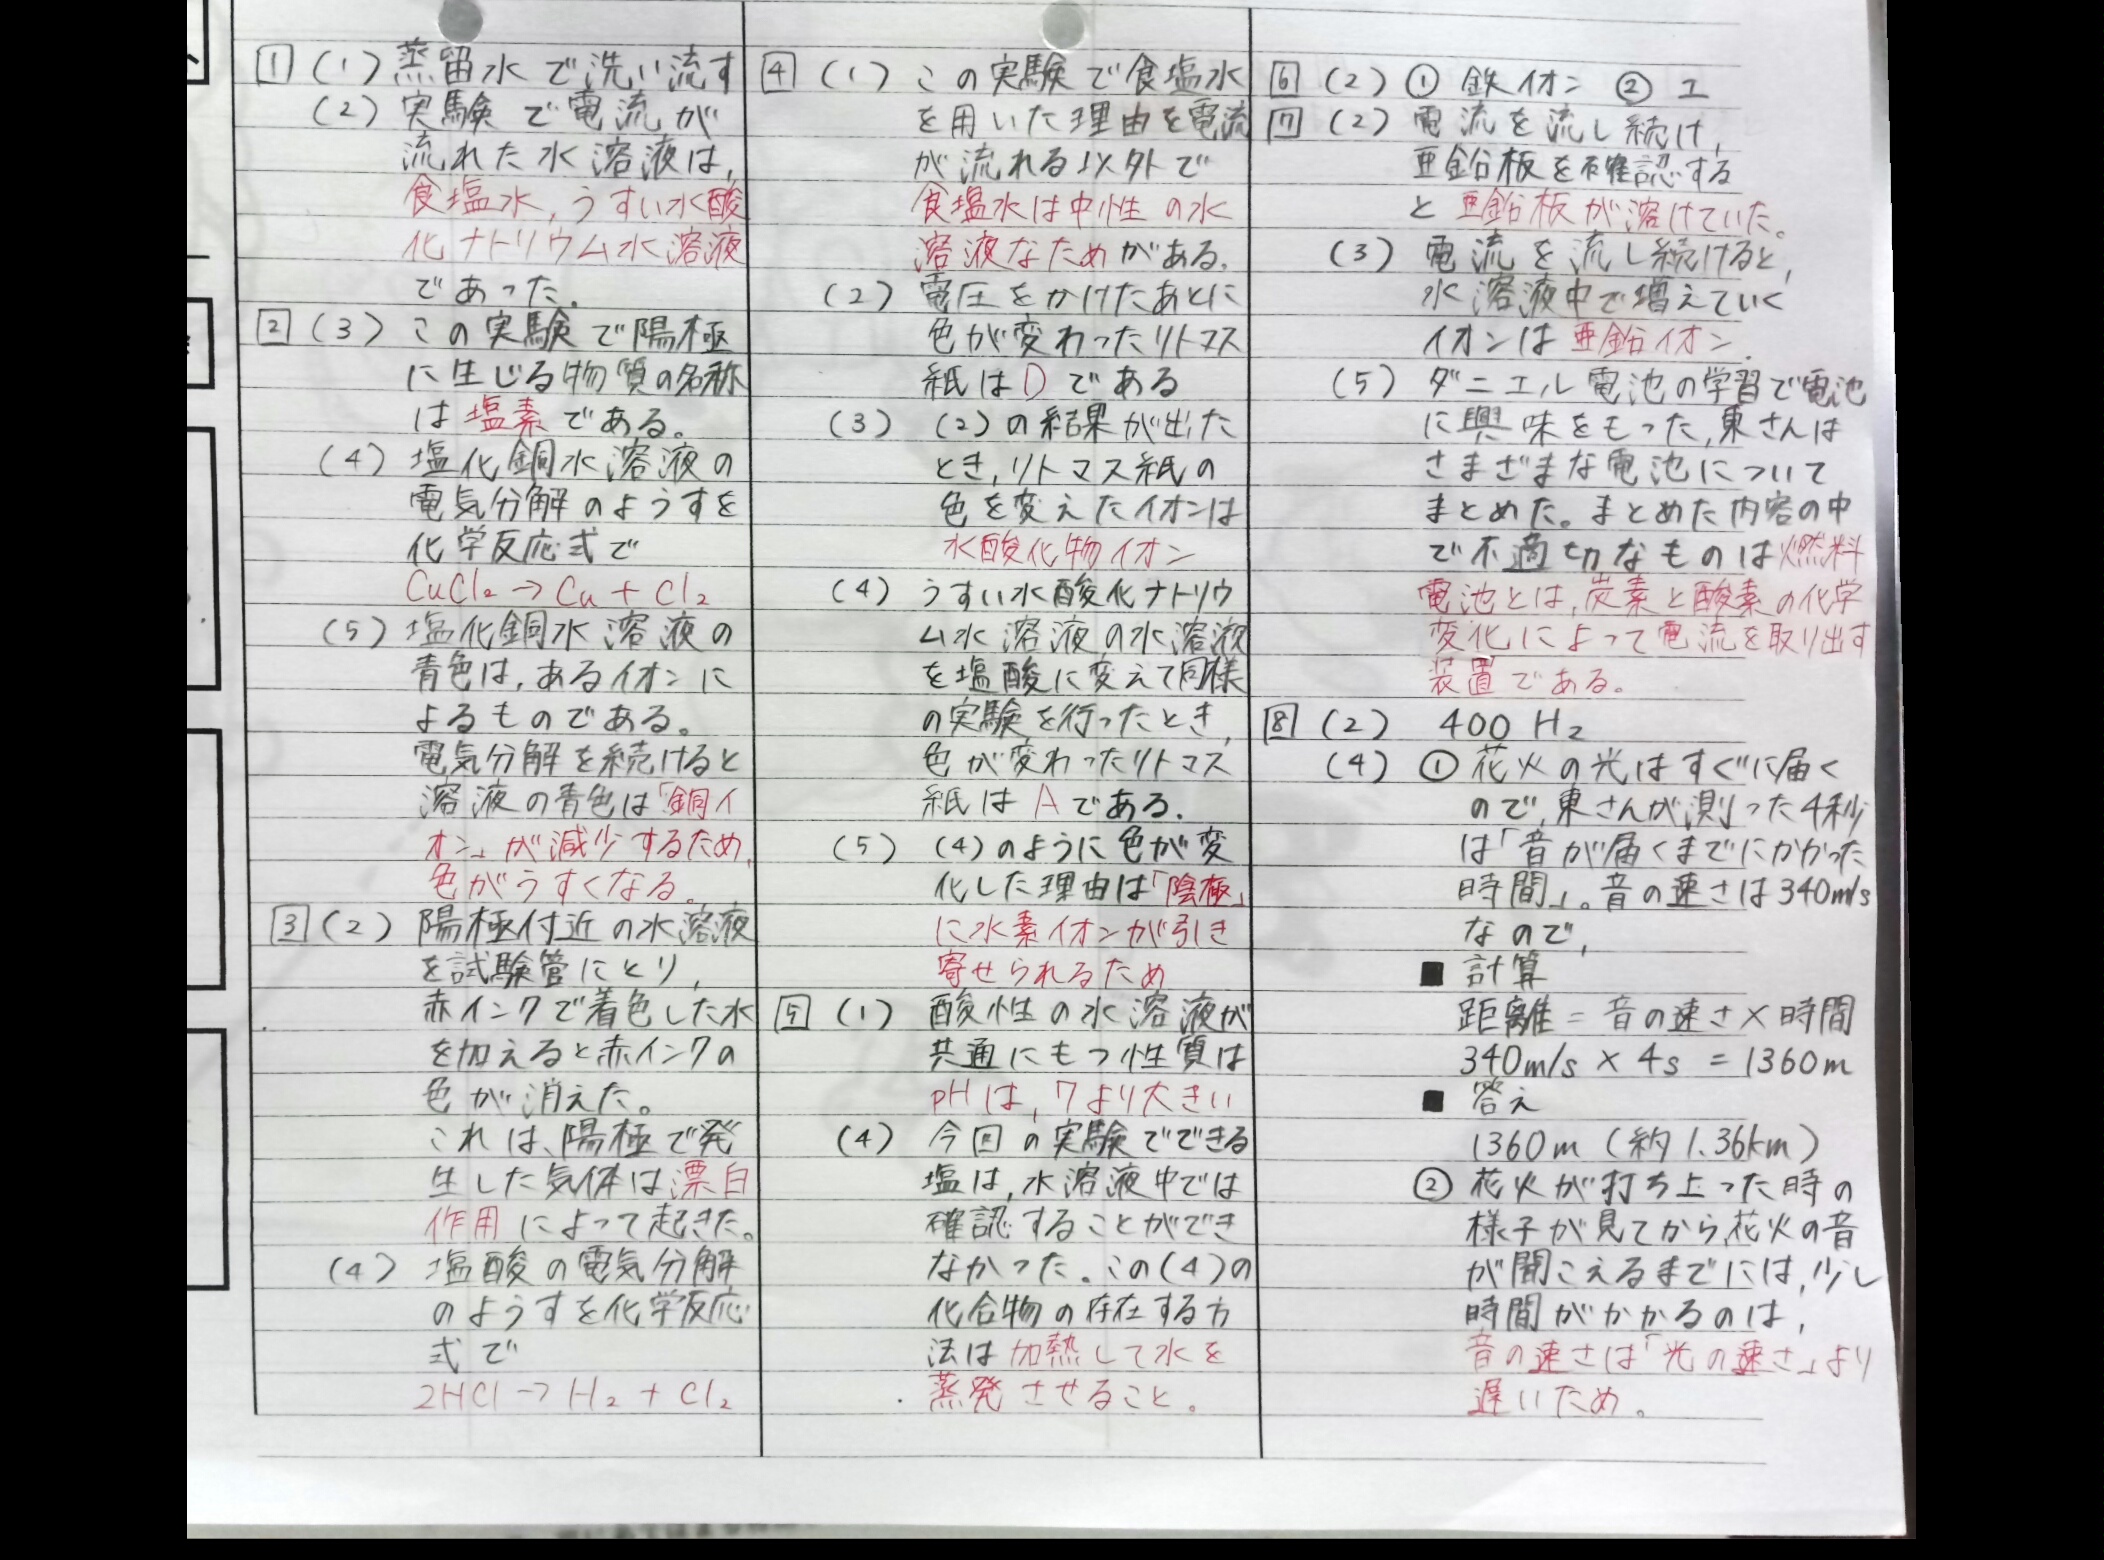 1 (1) 蒸留水で洗い流す
(2) 実験で電流が
流れた水溶液は,
食塩水,うすい水酸
化ナトリウム水溶液
であった。
2 (3) この実験で陽極
に生じる物質の名称
は塩素である。
(4) 塩化銅水溶液の
電気分解のようすを
化学反応式で
CuCl₂→Cu+Cl₂
(5) 塩化銅水溶液の
青色は,あるイオンに
よるものである。
電気分解を続けると
溶液の青色は「銅イ
オン」が減少するため,
色がうすくなる。
3 (2) 陽極付近の水溶液
を試験管にとり,
赤インクで着色した水
を加えると赤インクの
色が消えた。
これは、陽極で発
生した気体は漂白
作用によって起きた。
(4) 塩酸の電気分解
のようすを化学反応
式で
2HCl→H₂+Cl₂
4 (1) この実験で食塩水
を用いた理由を電流
が流れる以外で
食塩水は中性の水
溶液なためがある.
(2) 電圧をかけたあとに
色が変わったリトマス
紙はDである
(3) (2)の結果が出た
とき,リトマス紙の
色を変えたイオンは
水酸化物イオン
(4) うすい水酸化ナトリウ
ム水溶液の水溶液
を塩酸に変えて同様
の実験を行ったとき,
色が変わったリトマス
紙はAである.
(5) (4)のように色が変
化した理由は「陰極」
に水素イオンが引き
寄せられるため
5 (1) 酸性の水溶液が
共通にもつ性質は
pHは,7より大きい
(4) 今回の実験でできる
塩は,水溶液中では
確認することができ
なかった.この(4)の
化合物の存在する方
法は加熱して水を
蒸発させること。
6 (2) ① 鉄イオン ② エ
7 (2) 電流を流し続け,
亜鉛板を確認する
と亜鉛板が溶けていた。
(3) 電流を流し続けると,
水溶液中で増えていく
イオンは亜鉛イオン.
(5) ダニエル電池の学習で電池
に興味をもった,東さんは
さまざまな電池について
まとめた。まとめた内容の中
で不適切なものは燃料
電池とは,炭素と酸素の化学
変化によって電流を取り出す
装置である。
8 (2) 400 Hz
(4) ① 花火の光はすぐに届く
ので,東さんが測った4秒
は「音が届くまでにかかった
時間」。音の速さは340m/s
なので,
■ 計算
距離=音の速さ×時間
340m/s × 4s = 1360m
■ 答え
1360m (約1.36km)
② 花火が打ち上った時の
様子が見てから,花火の音
が聞こえるまでには,少し
時間がかかるのは,
音の速さは「光の速さ」より
遅いため。